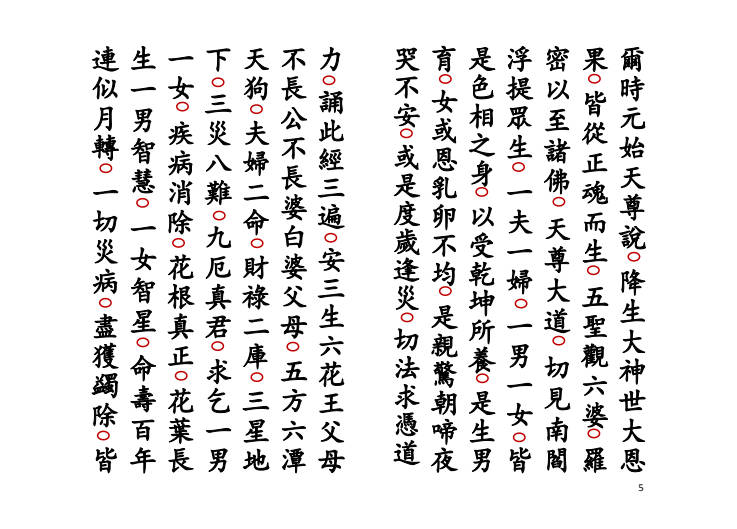 爾時元始天尊說○降生大神世大恩
果○皆從正魂而生○五聖觀六婆○羅
密以至諸佛○天尊大道○切見南閻
浮提眾生○一夫一婦○一男一女○皆
是色相之身○以受乾坤所養○是生男
育○女或恩乳卵不均○是親驚朝啼夜
哭不安○或是度歲逢災○切法求憑道
力○誦此經三遍○安三生六花王父母
不長公不長婆白婆父母○五方六潭
天狗○夫婦二命○財祿二庫○三星地
下○三災八難○九厄真君○求乞一男
一女○疾病消除○花根真正○花葉長
生一男智慧○一女智星○命壽百年
連似月轉○一切災病○盡獲蠲除○皆
5